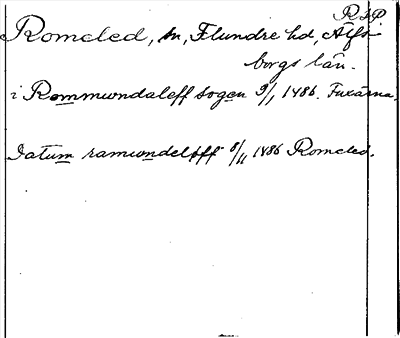 R&P
Romeled, sn, Flundre hd, Älfs-
borgs län.
i Rommundaleff sogen 9/1 1486. Fuxärna.
Datum ramundeleff 8/11 1486 Romeled.